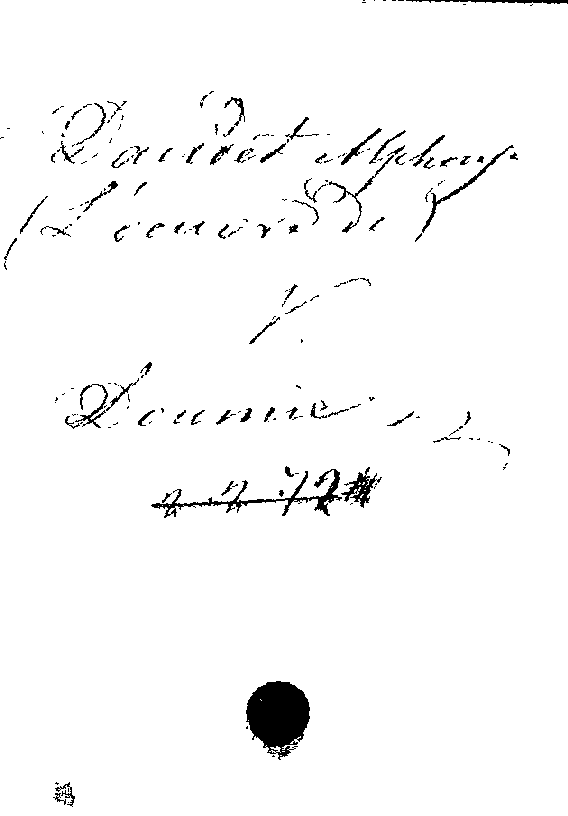 Daudet Alphonse
(L'oeuvre de)
V.
Doumic